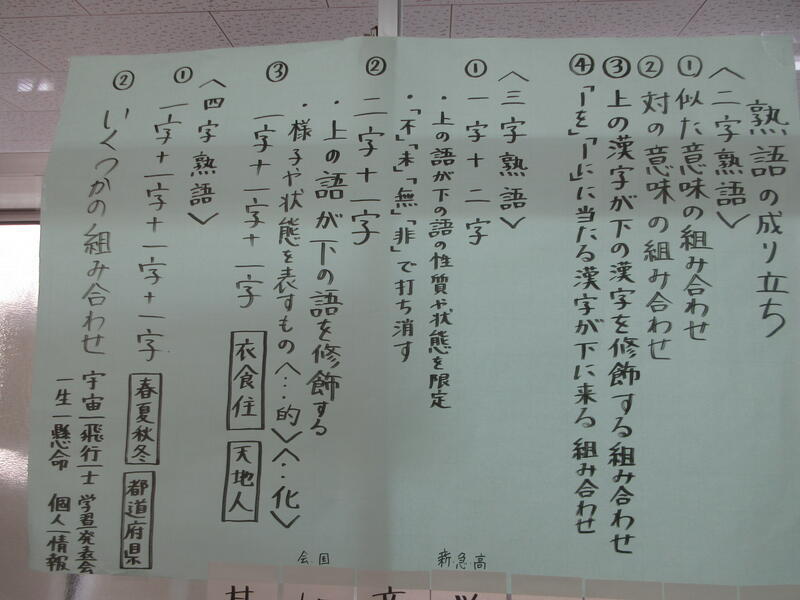 熟語の成り立ち
〈二字熟語〉
①似た意味の組み合わせ
②対の意味の組み合わせ
③上の漢字が下の漢字を修飾する組み合わせ
④「ーを」「ーに」に当たる漢字が下に来る組み合わせ
〈三字熟語〉
①一字+二字
・上の語が下の語の性質や状態を限定
・「不」「未」「無」「非」で打ち消す
②二字+一字
・上の語が下の語を修飾する
・様子や状態を表すもの〈…的〉〈…化〉
③一字+一字+一字 衣食住 天地人
〈四字熟語〉
①一字+一字+一字+一字 春夏秋冬 都道府県
②いくつかの組み合わせ
宇宙ー飛行ー士 学習発表会
一生ー懸命 個人ー情報
高
急
新
国
会